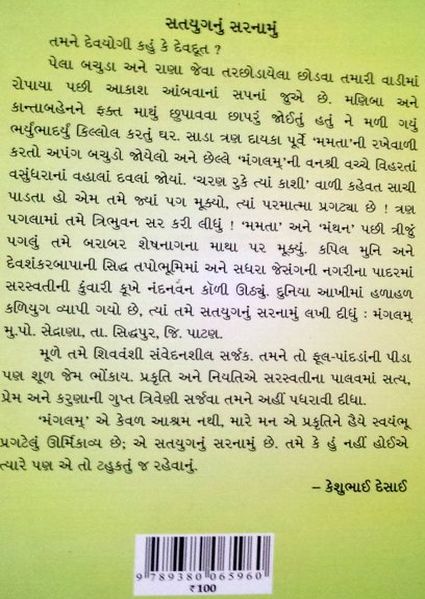 સતયુગનું સરનામું
તમને દેવયોગી કહું કે દેવદૂત ?
પેલા બચુડા અને રાણા જેવા તરછોડાયેલા છોડવા તમારી વાડીમાં
રોપાયા પછી આકાશ આંબવાનાં સપનાં જુએ છે. મણિબા અને
કાન્તાબહેનને ફક્ત માથું છુપાવવા છાપરું જોઈતું હતું ને મળી ગયું
ભર્યુંભાદર્યું કિલ્લોલ કરતું ઘર. સાડા ત્રણ દાયકા પૂર્વે ‘મમતા’ની રખેવાળી
કરતો અપંગ બચુડો જોયેલો અને છેલ્લે ‘મંગલમ્’ની વનશ્રી વચ્ચે વિહરતાં
વસુંધરાનાં વહાલાં દવલાં જોયાં. ‘ચરણ રુકે ત્યાં કાશી’ વાળી કહેવત સાચી
પાડતા હો એમ તમે જ્યાં પગ મૂક્યો, ત્યાં પરમાત્મા પ્રગટ્યા છે ! ત્રણ
પગલામાં તમે ત્રિભુવન સર કરી લીધું ! ‘મમતા’ અને ‘મંથન’ પછી ત્રીજું
પગલું તમે બરાબર શેષનાગના માથા પર મૂક્યું. કપિલ મુનિ અને
દેવશંકરબાપાની સિદ્ધ તપોભૂમિમાં અને સધરા જેસંગની નગરીના પાદરમાં
સરસ્વતીની કુંવારી કૂખે નંદનવન કૉળી ઊઠ્યું. દુનિયા આખીમાં હળાહળ
કળિયુગ વ્યાપી ગયો છે, ત્યાં તમે સતયુગનું સરનામું લખી દીધું : મંગલમ્
મુ.પો. સેદ્રાણા, તા. સિદ્ધપુર, જિ. પાટણ.
મૂળે તમે શિવવંશી સંવેદનશીલ સર્જક. તમને તો ફૂલ-પાંદડાંની પીડા
પણ શૂળ જેમ ભોંકાય. પ્રકૃતિ અને નિયતિએ સરસ્વતીના પાલવમાં સત્ય,
પ્રેમ અને કરુણાની ગુપ્ત ત્રિવેણી સર્જવા તમને અહીં પધરાવી દીધા.
‘મંગલમ્’ એ કેવળ આશ્રમ નથી, મારે મન એ પ્રકૃતિને હૈયે સ્વયંભૂ
પ્રગટેલું ઊર્મિકાવ્ય છે; એ સતયુગનું સરનામું છે. તમે કે હું નહીં હોઈએ
ત્યારે પણ એ તો ટહુકતું જ રહેવાનું.
– કેશુભાઈ દેસાઈ
9 789380 065960
₹100